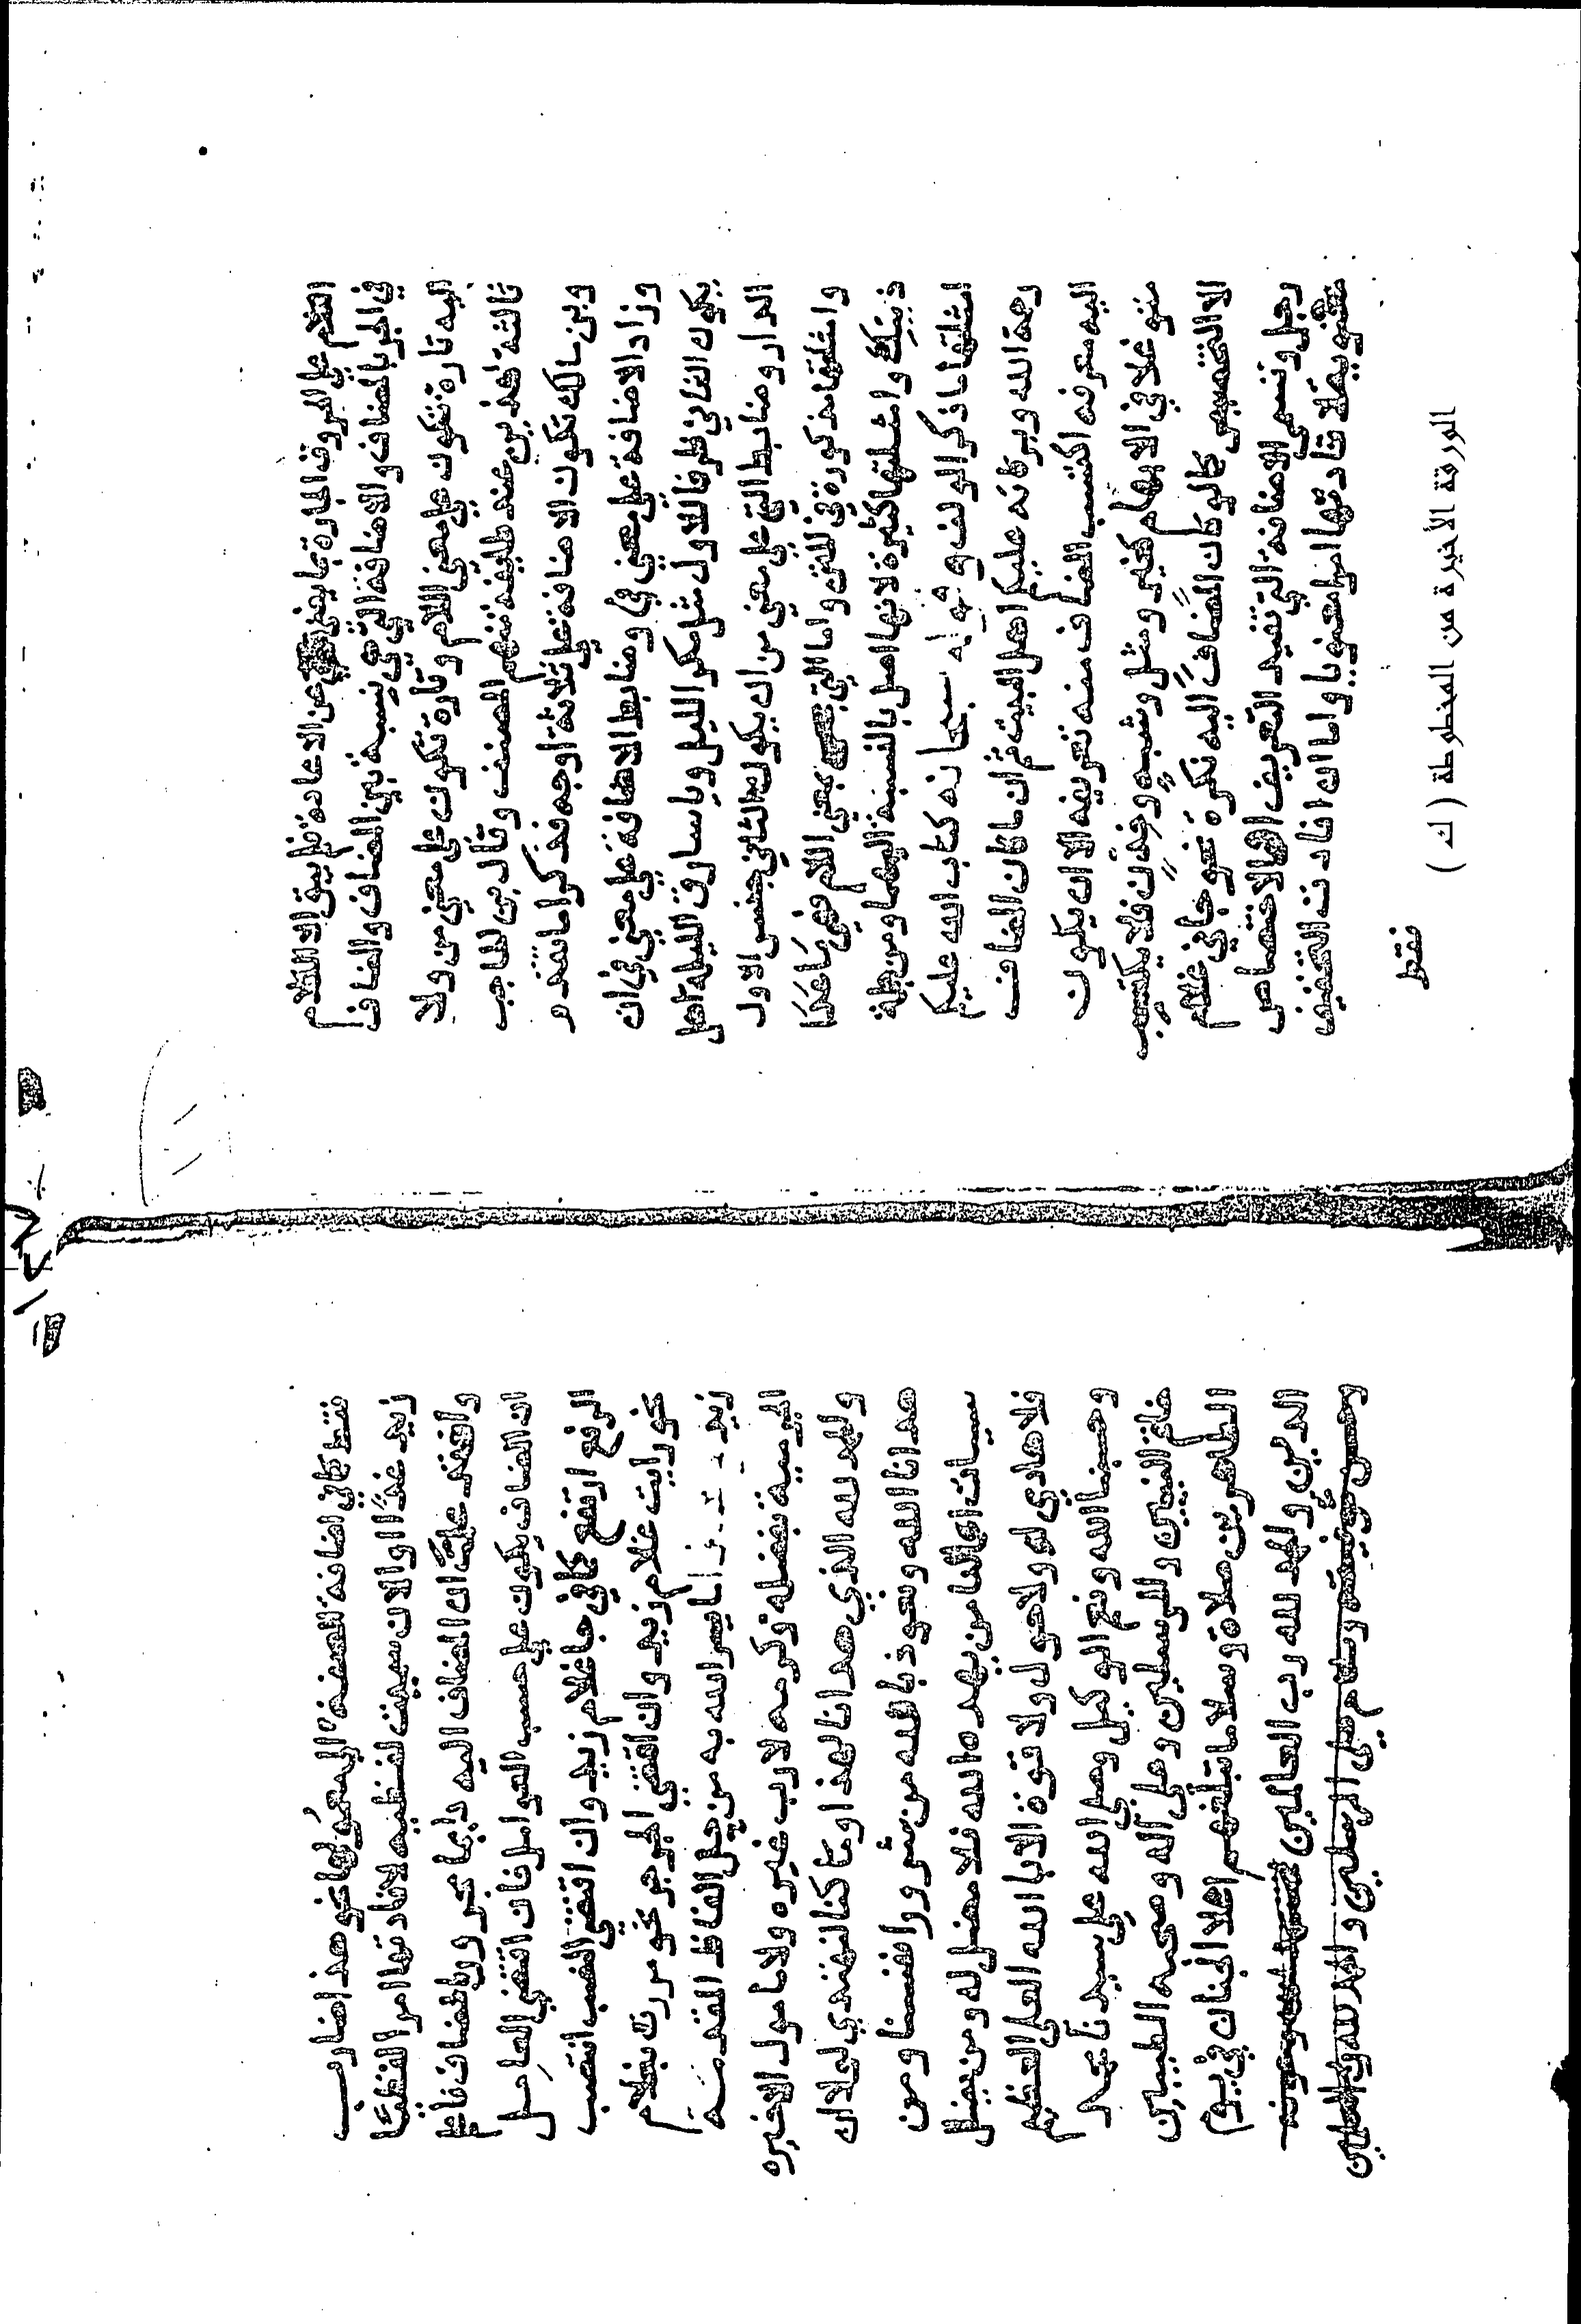 الكلام علي الحروف الجارة بما يغني عن الاعادة فلم يبق الا الكلام
في الجر بالمضاف والاضافة التي هي نسبة بين المضاف والمضاف
اليه تارة تكون علي معني اللام وتارة تكون علي معني من ولا
ثالثة لهذين عند طايفة منهم المصنف وقال بن الحاجب
وبن مالك تكون الاضافة علي ثلاثة اوجه فذكرا ما تقدم و
وزاد الاضافة علي معني في وضابط الاضافة علي معني في ان
يكون الثاني ظرفا للاول مثل مكر الليل ويا سارق الليلة اهل
الدار وضابط التي علي معني من ان يكون الثاني جنس الاول
وامثلتها مذكورة في المتن واما التي بمعني اللام فهي ما عدا
ذينك وامثلتها كثيرة لانها اصل بالنسبة اليهما ومن جملة
امثلتها ما ذكر المولف وقوله سبحانه كتاب الله عليكم
رحمة الله وبركاته عليكم اهل البيت ثم ان ماكان المضاف
اليه معرفه اكتسب المضاف منه تعريفه الا ان يكون
متوغلا في الابهام كغير ومثل وشبه وخدن فلا يكتسب
الا التخصيص كما لو كان المضاف اليه نكرة نحو جاني غلام
رجل وتسمي الاضافة التي تفيد التعريف او الاختصاص
معنوية لافادتها امرا معنويا واما ان افادت التخفيف
فقط
الورقة الأخيرة من المخطوطة ( ك )
فقط كما في اضافة الصفة الي معمولها نحو هذا ضارب
زيد غدًا او الان سميت لفظيه لافادتها امرا لفظيًا
وافهم علمت ان المضاف اليه دايما مجرور والمضاف فاعلم
ان المضاف يكون علي حسب العوامل فان اقتضي العامل
الرفع ارتفع كما في جا غلام زيد وان اقتضي النصب انتصب
نحو رايت غلام زيد وان اقتضي الجر جر نحو مررت بغلام
زيد ما يسر الله به من حل الفاظ المقدمة
الجرومية بفضله وكرمه لا رب غيره ولا مامول الا خيره
والحمد لله الذي هدانا لهذا وما كنا لنهتدي لولا ان
هدانا الله ونعوذ بالله من شرور انفسنا ومن
سيئات اعمالنا من يهده الله فلا مضل له ومن يضلل
فلا هادي له ولا حول ولا قوة الا بالله العلي العظيم
وحسبنا الله ونعم الوكيل وصلي الله علي سيدنا محمد
خاتم النبيين والمرسلين وعلي آله وصحبه الطيبين
الطاهرين صلاة وسلاما تبلغهم اعلا الجنان في يوم
الدين والحمد لله رب العالمين
وسلام علي المرسلين والحمد لله رب العالمين